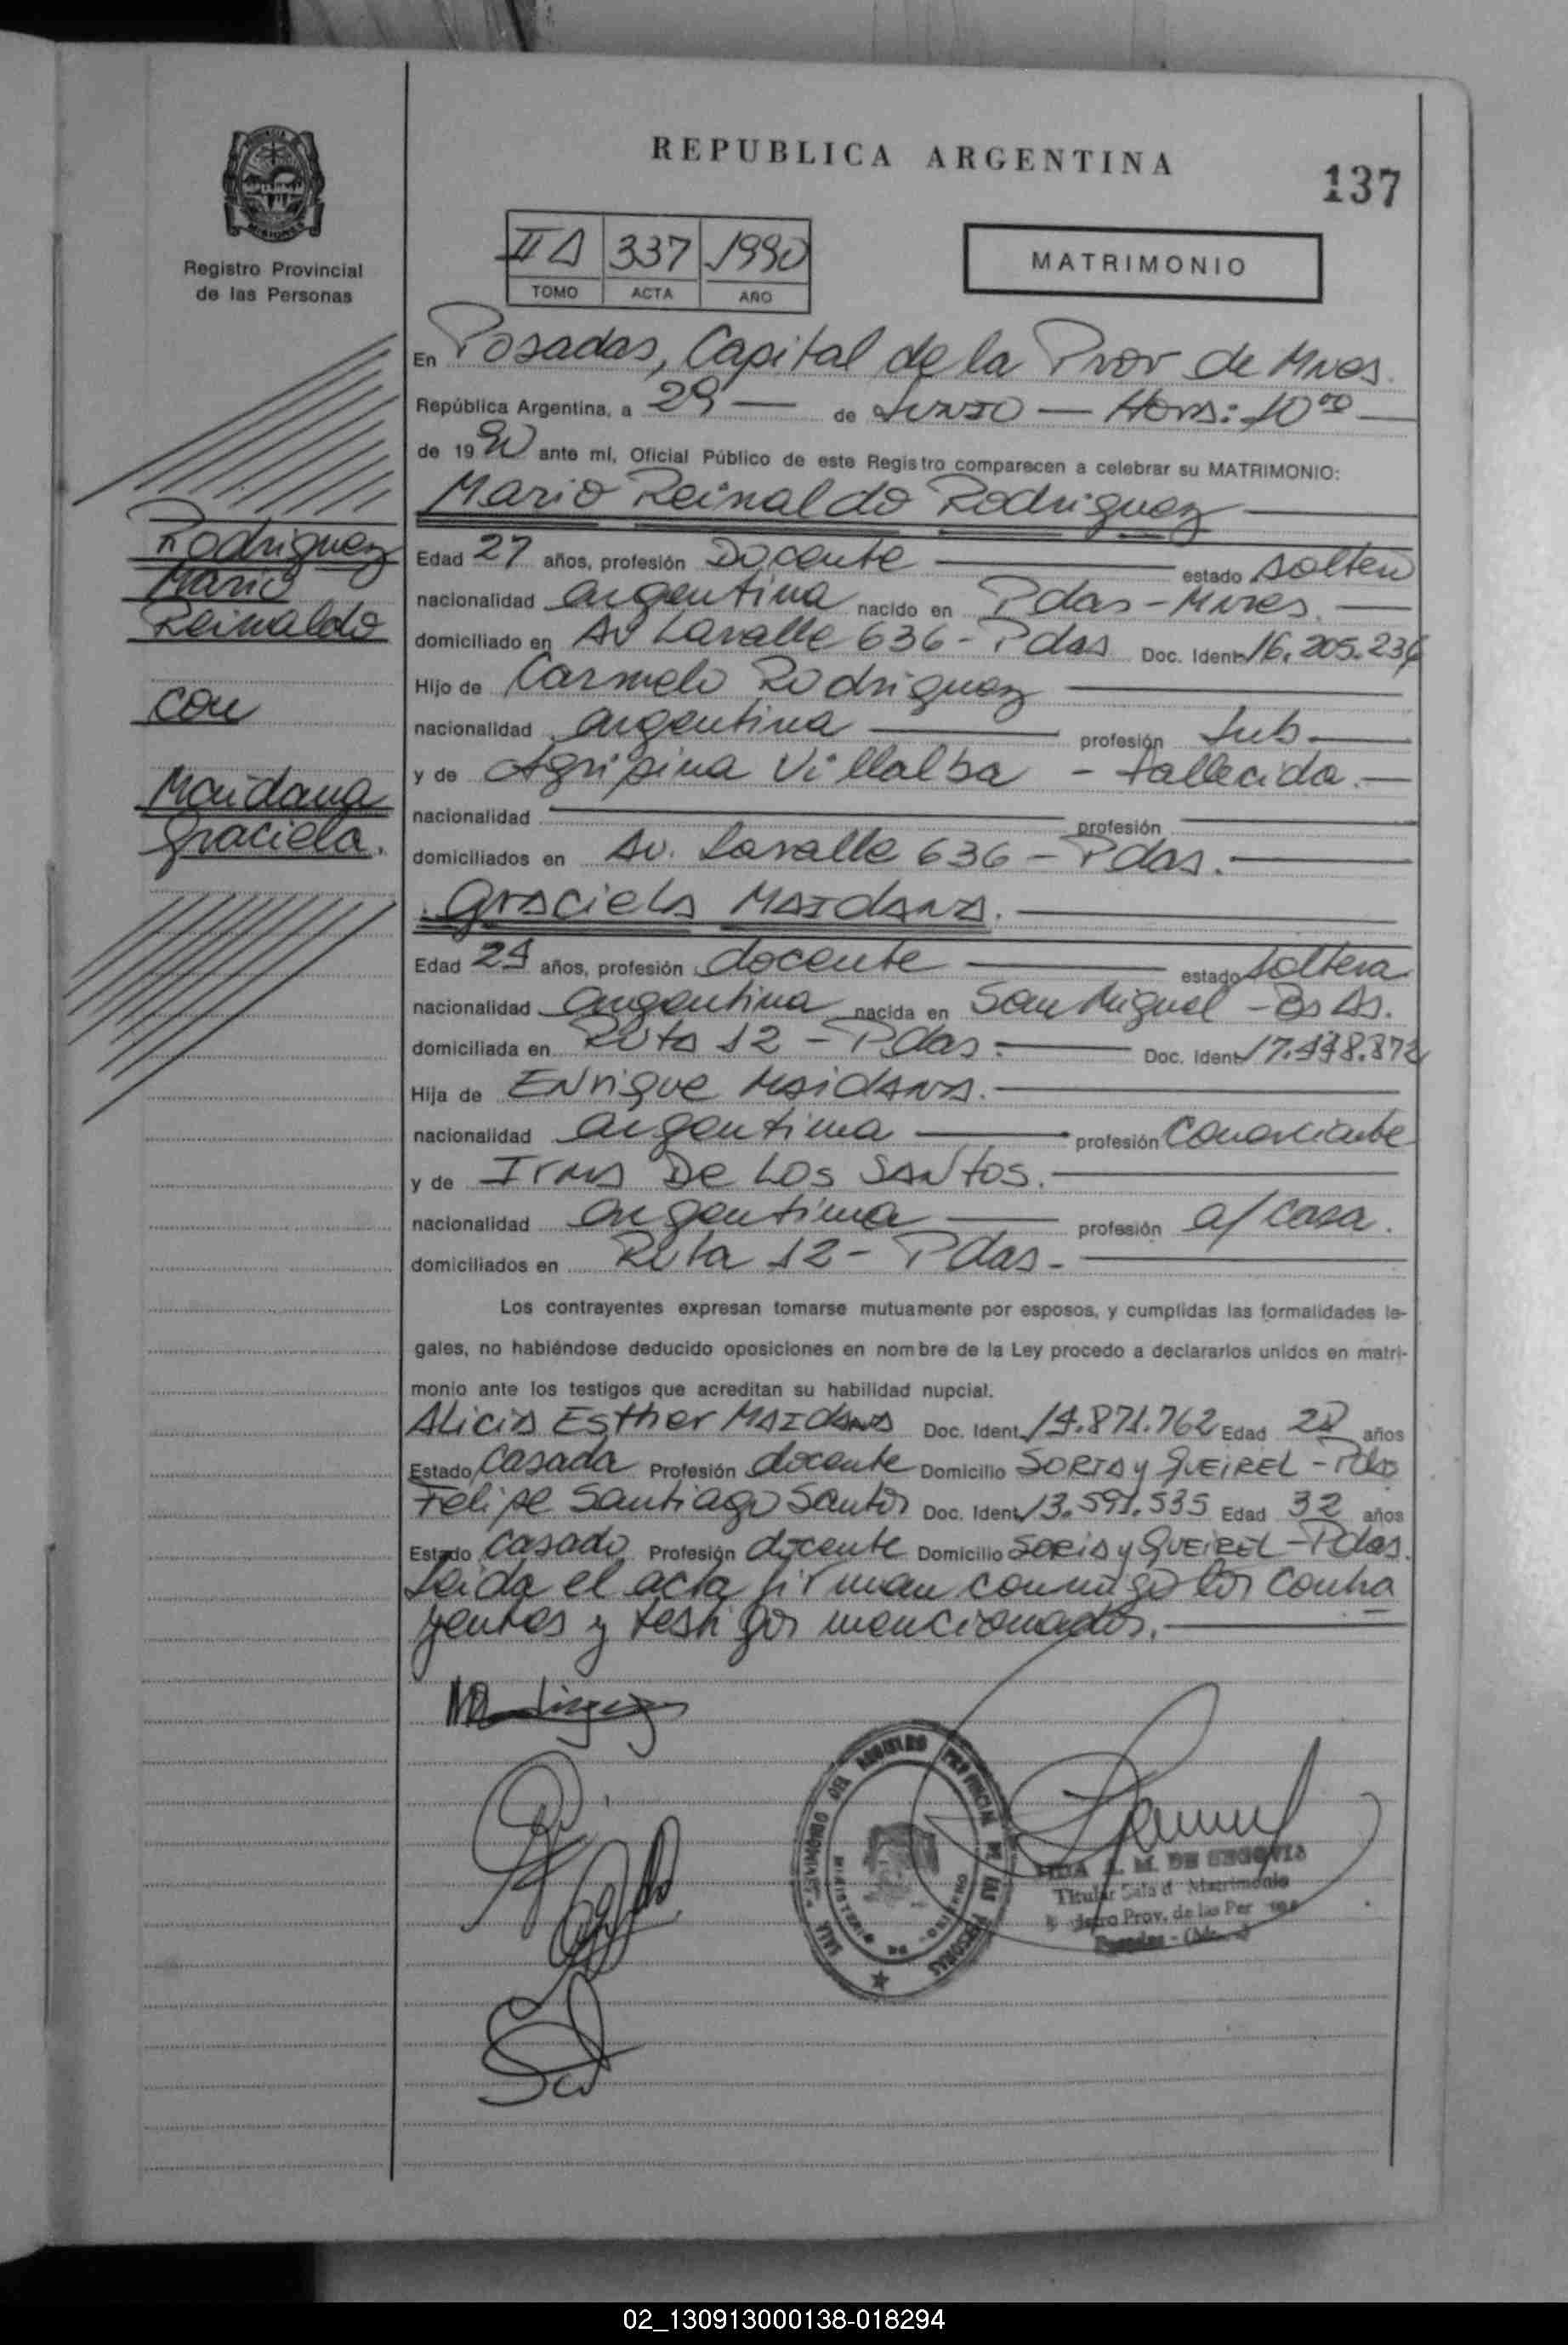 REPUBLICA ARGENTINA
137
Registro Provincial
de las Personas
II A 337 1990
TOMO ACTA AÑO
MATRIMONIO
En Posadas, Capital de la Prov de Mnes.
República Argentina, a 29 — de Junio — Hora: 10 00
de 1990 ante mí, Oficial Público de este Registro comparecen a celebrar su MATRIMONIO:
Mario Reinaldo Rodriguez
Rodriguez
Mario
Reinaldo
con
Maidana
Graciela.
Edad 27 años, profesión Docente estado soltero
nacionalidad argentina nacido en Pdas - Mnes.
domiciliado en Av Lavalle 636 - Pdas Doc. Ident. 16.205.236
Hijo de Carmelo Rodriguez
nacionalidad argentina profesión Jub.
y de Agripina Villalba - fallecida.
nacionalidad profesión
domiciliados en Av. Lavalle 636 - Pdas.
Graciela Maidana.
Edad 24 años, profesión docente estado soltera
nacionalidad argentina nacida en San Miguel - Bs As.
domiciliada en Ruta 12 - Pdas. Doc. Ident. 17.448.872
Hija de Enrique Maidana.
nacionalidad argentina profesión Comerciante
y de Irma De Los Santos.
nacionalidad argentina profesión a/casa.
domiciliados en Ruta 12 - Pdas -
Los contrayentes expresan tomarse mutuamente por esposos, y cumplidas las formalidades le-
gales, no habiéndose deducido oposiciones en nombre de la Ley procedo a declararlos unidos en matri-
monio ante los testigos que acreditan su habilidad nupcial.
Alicia Esther Maidana Doc. Ident. 14.871.762 Edad 28 años
Estado Casada Profesión docente Domicilio Soria y Queirel - Pdas
Felipe Santiago Santos Doc. Ident. 13.591.535 Edad 32 años
Estado Casado Profesión docente Domicilio Soria y Queirel - Pdas.
Leida el acta firman conmigo los contra
yentes y testigos mencionados.
SALA MATRIMONIO DEL REGISTRO PROVINCIAL DE LAS PERSONAS
MINISTERIO DE GOBIERNO
A. M. DE SEGOVIA
Titular Sala d Matrimonio
Prov. de las Per
02_130913000138-018294